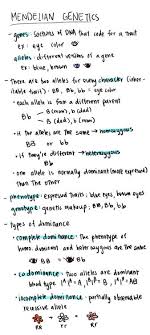 MENDELIAN GENETICS
- genes: sections of DNA that code for a trait
ex: eye color
- alleles: different versions of a gene
ex: blue, brown
- There are two alleles for every character (inher-
itable trait): BB, Bb, bb - eye color
- each allele is from a different parent
Bb Bb
B (mom) b (dad)
- if the alleles are the same → homozygous
BB or bb
- if they're different → heterozygous
Bb
- one allele is normally dominant (more expressed)
than the other
- phenotype: expressed traits: blue eyes, brown eyes
genotype: genetic makeup: BB, Bb, bb
- types of dominance
- complete dominance: the phenotype of
homo. dominant and heterozygous are the same
BB Bb
- codominance: two alleles are dominant
blood type
- incomplete dominance: partially observable
recessive allele
+ =
RR rr Rr